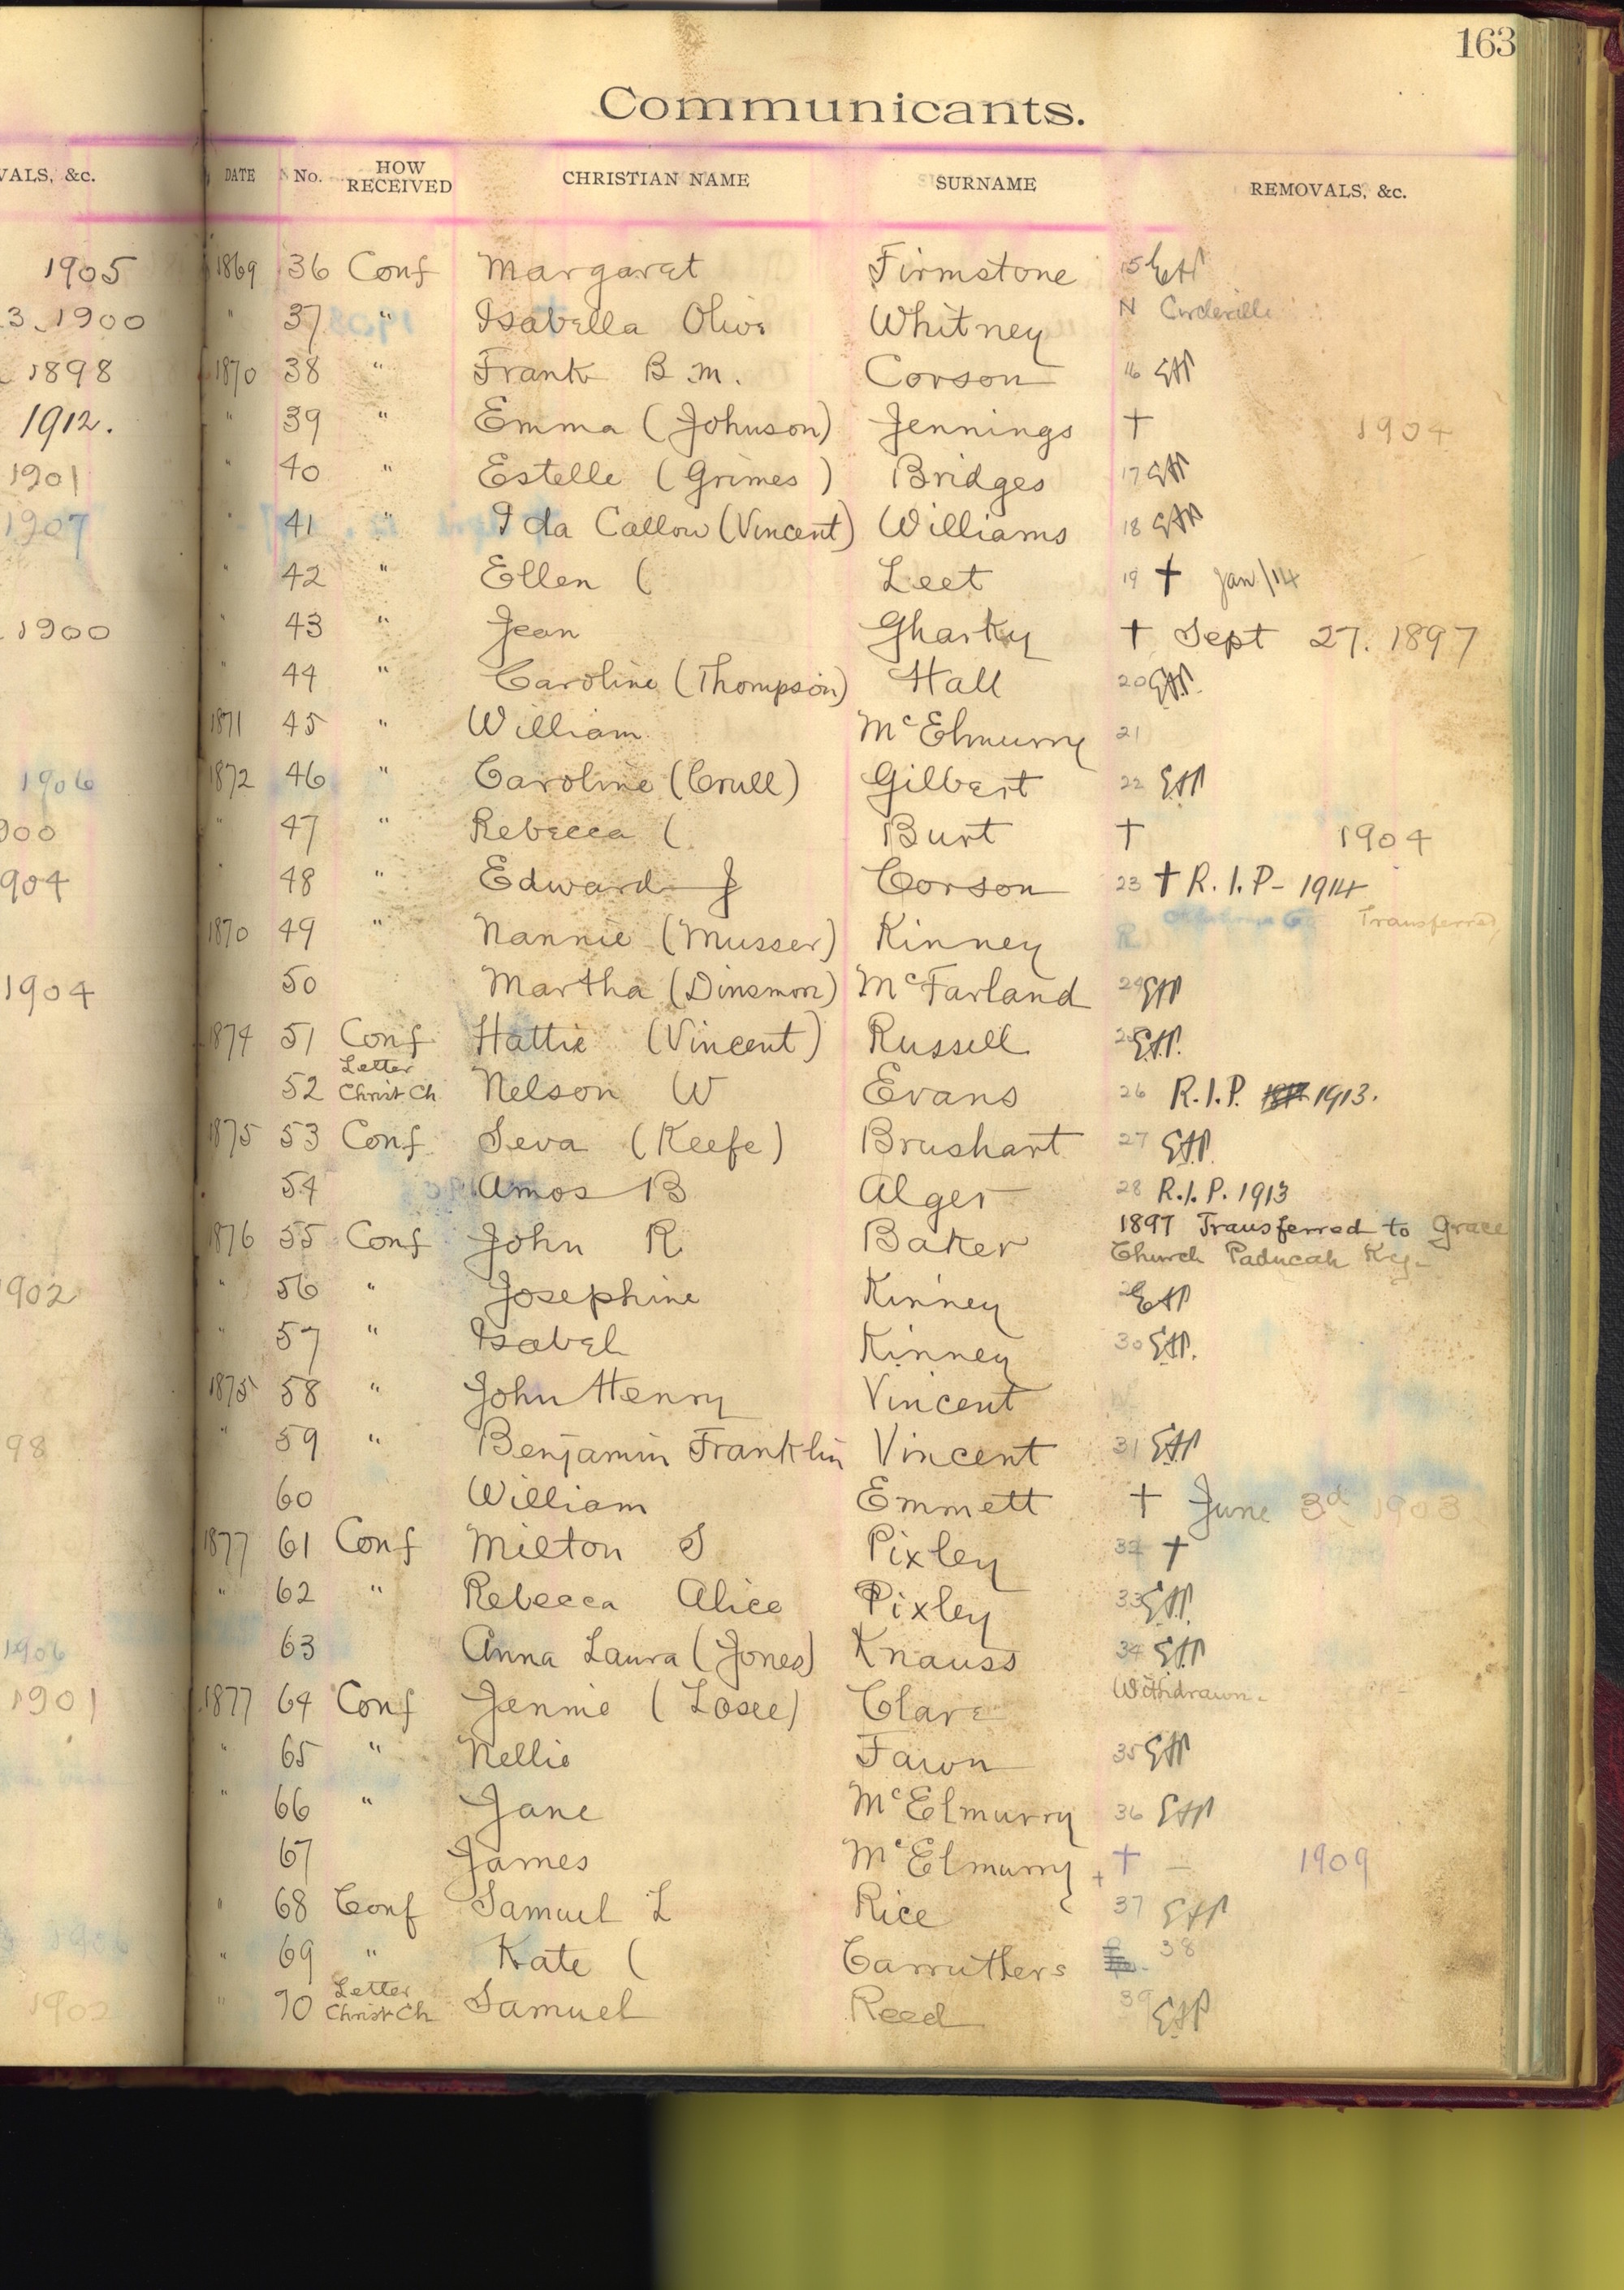 163
Communicants.
VALS, &c.
DATE No. HOW RECEIVED CHRISTIAN NAME SURNAME REMOVALS, &c.
1905
1869 36 Conf Margaret Firmstone 15 EAP
3. 1900
" 37 " Isabella Olive Whitney N
1898
1870 38 " Frank B. M. Corson 16 EAP
1912.
" 39 " Emma (Johnson) Jennings † 1904
1901
" 40 " Estelle (Grimes) Bridges 17 EAP
1907
" 41 " Ida Callow (Vincent) Williams 18 EAP
" 42 " Ellen ( Leet 19 † Jan/14
1900
" 43 " Jean Gharky † Sept 27. 1897
" 44 " Caroline (Thompson) Hall 20 EAP.
1871 45 " William McElmurry 21
1906
1872 46 " Caroline (Crull) Gilbert 22 EAP
900
" 47 " Rebecca ( Burt † 1904
904
" 48 " Edward J Corson 23 † R.I.P- 1914
1870 49 " Nannie (Musser) Kinney R. Transferred
1904
50 Martha (Dinsmore) McFarland 24 EAP
1874 51 Conf Hattie (Vincent) Russell 25 EAP.
52 Letter Christ Ch Nelson W Evans 26 R.I.P. 1913.
1875 53 Conf Seva (Keefe) Brushart 27 EAP.
54 Amos B Alger 28 R.I.P. 1913
1876 55 Conf John R Baker 1897 Transferred to Grace
Church Paducah Ky-
1902
" 56 " Josephine Kinney 29 EAP
" 57 " Isabel Kinney 30 EAP.
1875 58 " John Henry Vincent
98
" 59 " Benjamin Franklin Vincent 31 EAP
60 William Emmett † June 3d 1903
1877 61 Conf Milton S Pixley 32 †
" 62 " Rebecca Alice Pixley 33 EAP.
1906
63 Anna Laura (Jones) Knauss 34 EAP
1901
1877 64 Conf Jennie (Losee) Clare Withdrawn.
" 65 " Nellie Fawn 35 EAP
" 66 " Jane McElmurry 36 EAP
67 James McElmurry † - 1909
" 68 Conf Samuel L Rice 37 EAP
1906
" 69 " Kate ( Carruthers 38
1902
" 70 Letter Christ Ch Samuel Reed 39 EAP